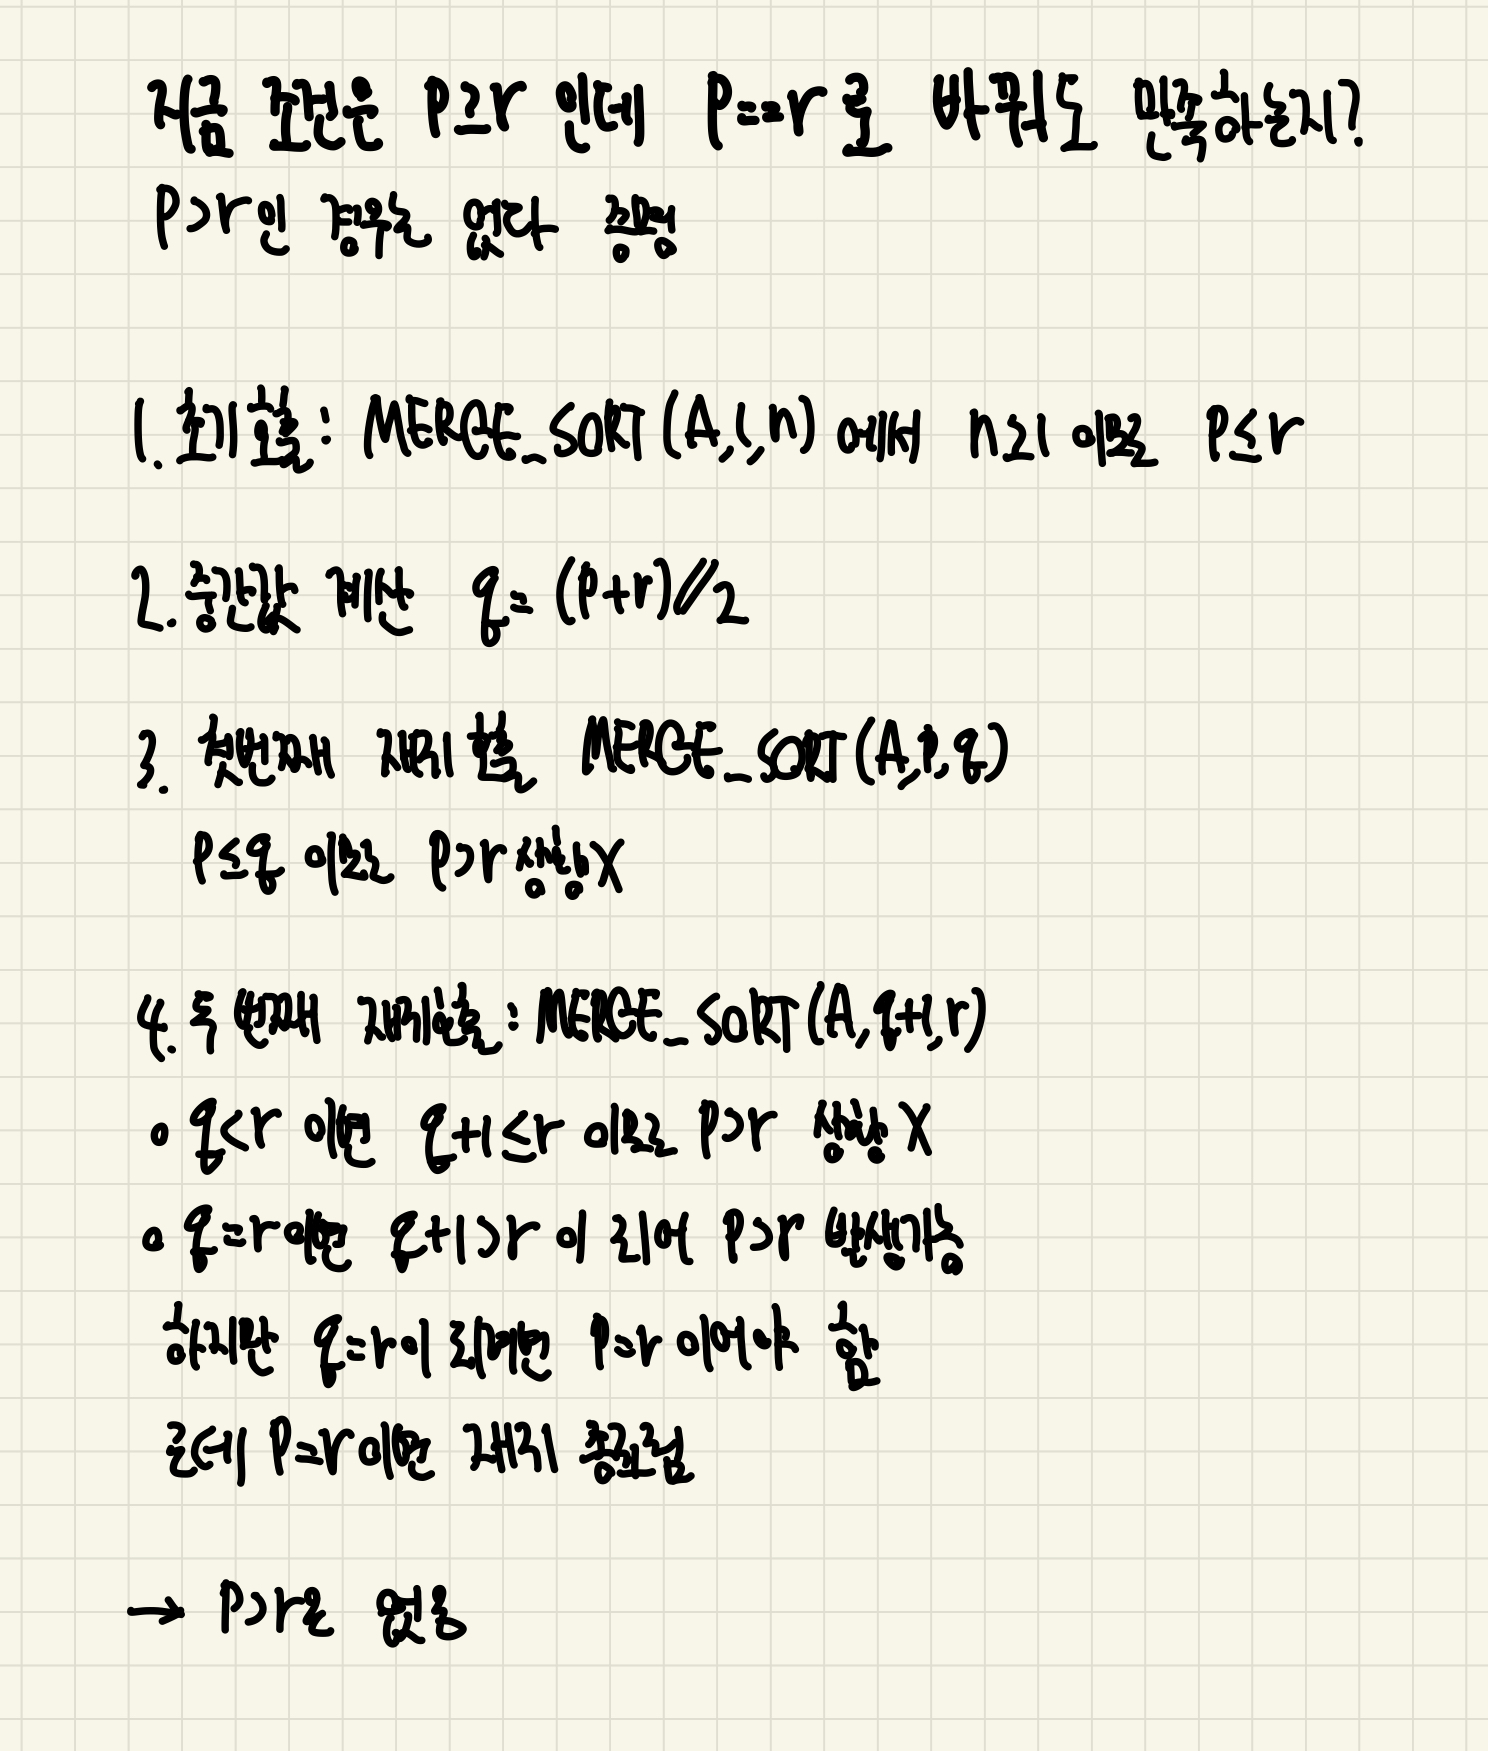 지금 조건은 P≥r 인데 P==r로 바꿔도 만족하는지?
P>r인 경우는 없다 증명
1. 초기 호출: MERGE_SORT(A,1,n) 에서 n≥1 이므로 P≤r
2. 중간값 계산 q=(P+r)//2
3. 첫번째 재귀 호출 MERGE_SORT(A,P,q)
P≤q 이므로 P>r 상황X
4. 두 번째 재귀호출: MERGE_SORT(A,q+1,r)
o q<r 이면 q+1≤r 이므로 P>r 상황X
o q=r이면 q+1>r 이 되어 P>r 발생가능
하지만 q=r이 되려면 P=r 이어야 함
근데 P=r이면 재귀 종료됨
→ P>r은 없음